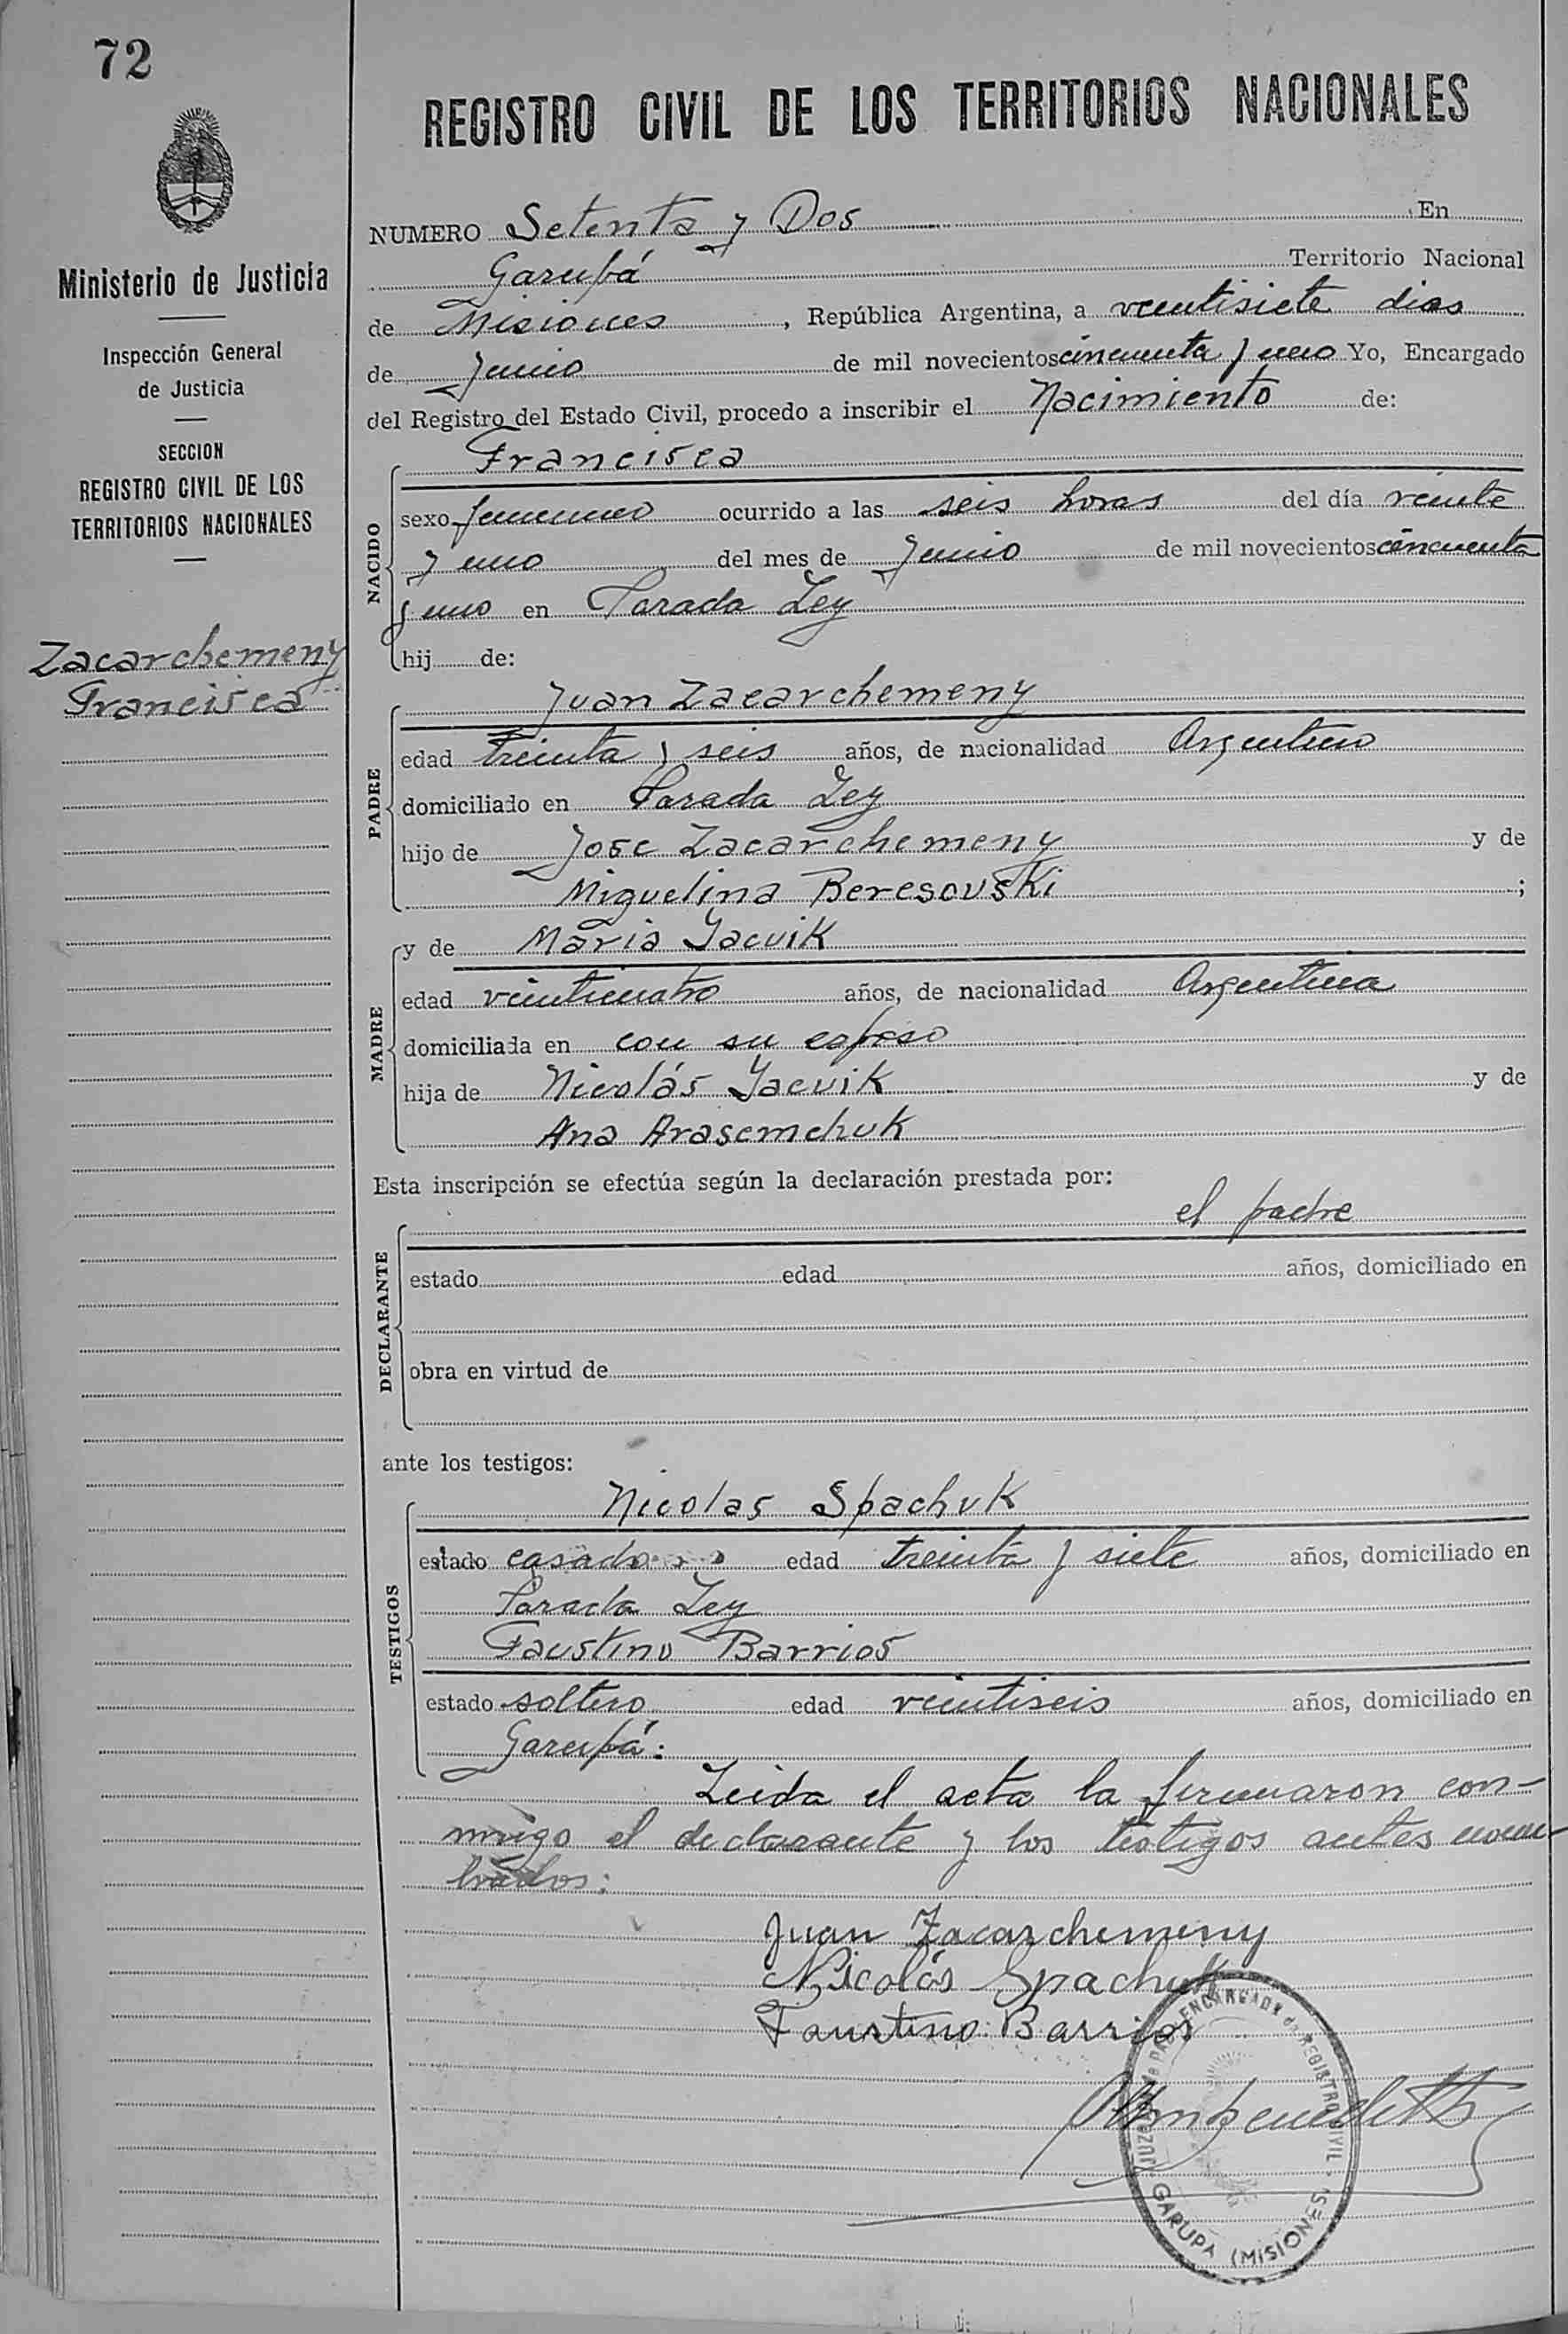 72
REGISTRO CIVIL DE LOS TERRITORIOS NACIONALES
Ministerio de Justicia
Inspección General
de Justicia
SECCION
REGISTRO CIVIL DE LOS
TERRITORIOS NACIONALES
Zacarchemeny
Francisca
NUMERO Setenta y Dos En
Garupá Territorio Nacional
de Misiones, República Argentina, a veintisiete dias
de Junio de mil novecientos cincuenta y uno Yo, Encargado
del Registro del Estado Civil, procedo a inscribir el Nacimiento de:
NACIDO
Francisca
sexo femenino ocurrido a las seis horas del día veinte
y uno del mes de Junio de mil novecientos cincuenta
y uno en Parada Ley
hij de:
PADRE
Juan Zacarchemeny
edad treinta y seis años, de nacionalidad Argentino
domiciliado en Parada Ley
hijo de Jose Zacarchemeny y de
Miguelina Beresovski ;
MADRE
y de Maria Yacvik
edad veinticuatro años, de nacionalidad Argentina
domiciliada en con su esposo
hija de Nicolás Yacvik y de
Ana Arasemchuk
Esta inscripción se efectúa según la declaración prestada por:
DECLARANTE
el padre
estado edad años, domiciliado en
obra en virtud de
ante los testigos:
TESTIGOS
Nicolas Spachuk
estado casado edad treinta y siete años, domiciliado en
Parada Ley
Faustino Barrios
estado soltero edad veintiseis años, domiciliado en
Garupá:
Leida el acta la firmaron con-
migo el declarante y los testigos antes nom-
brados:
Juan Zacarchemeny
Nicolás Spachuk
Faustino Barrios
JUZGADO de PAZ ENCARGADO de REGISTRO CIVIL
GARUPA (MISIONES)